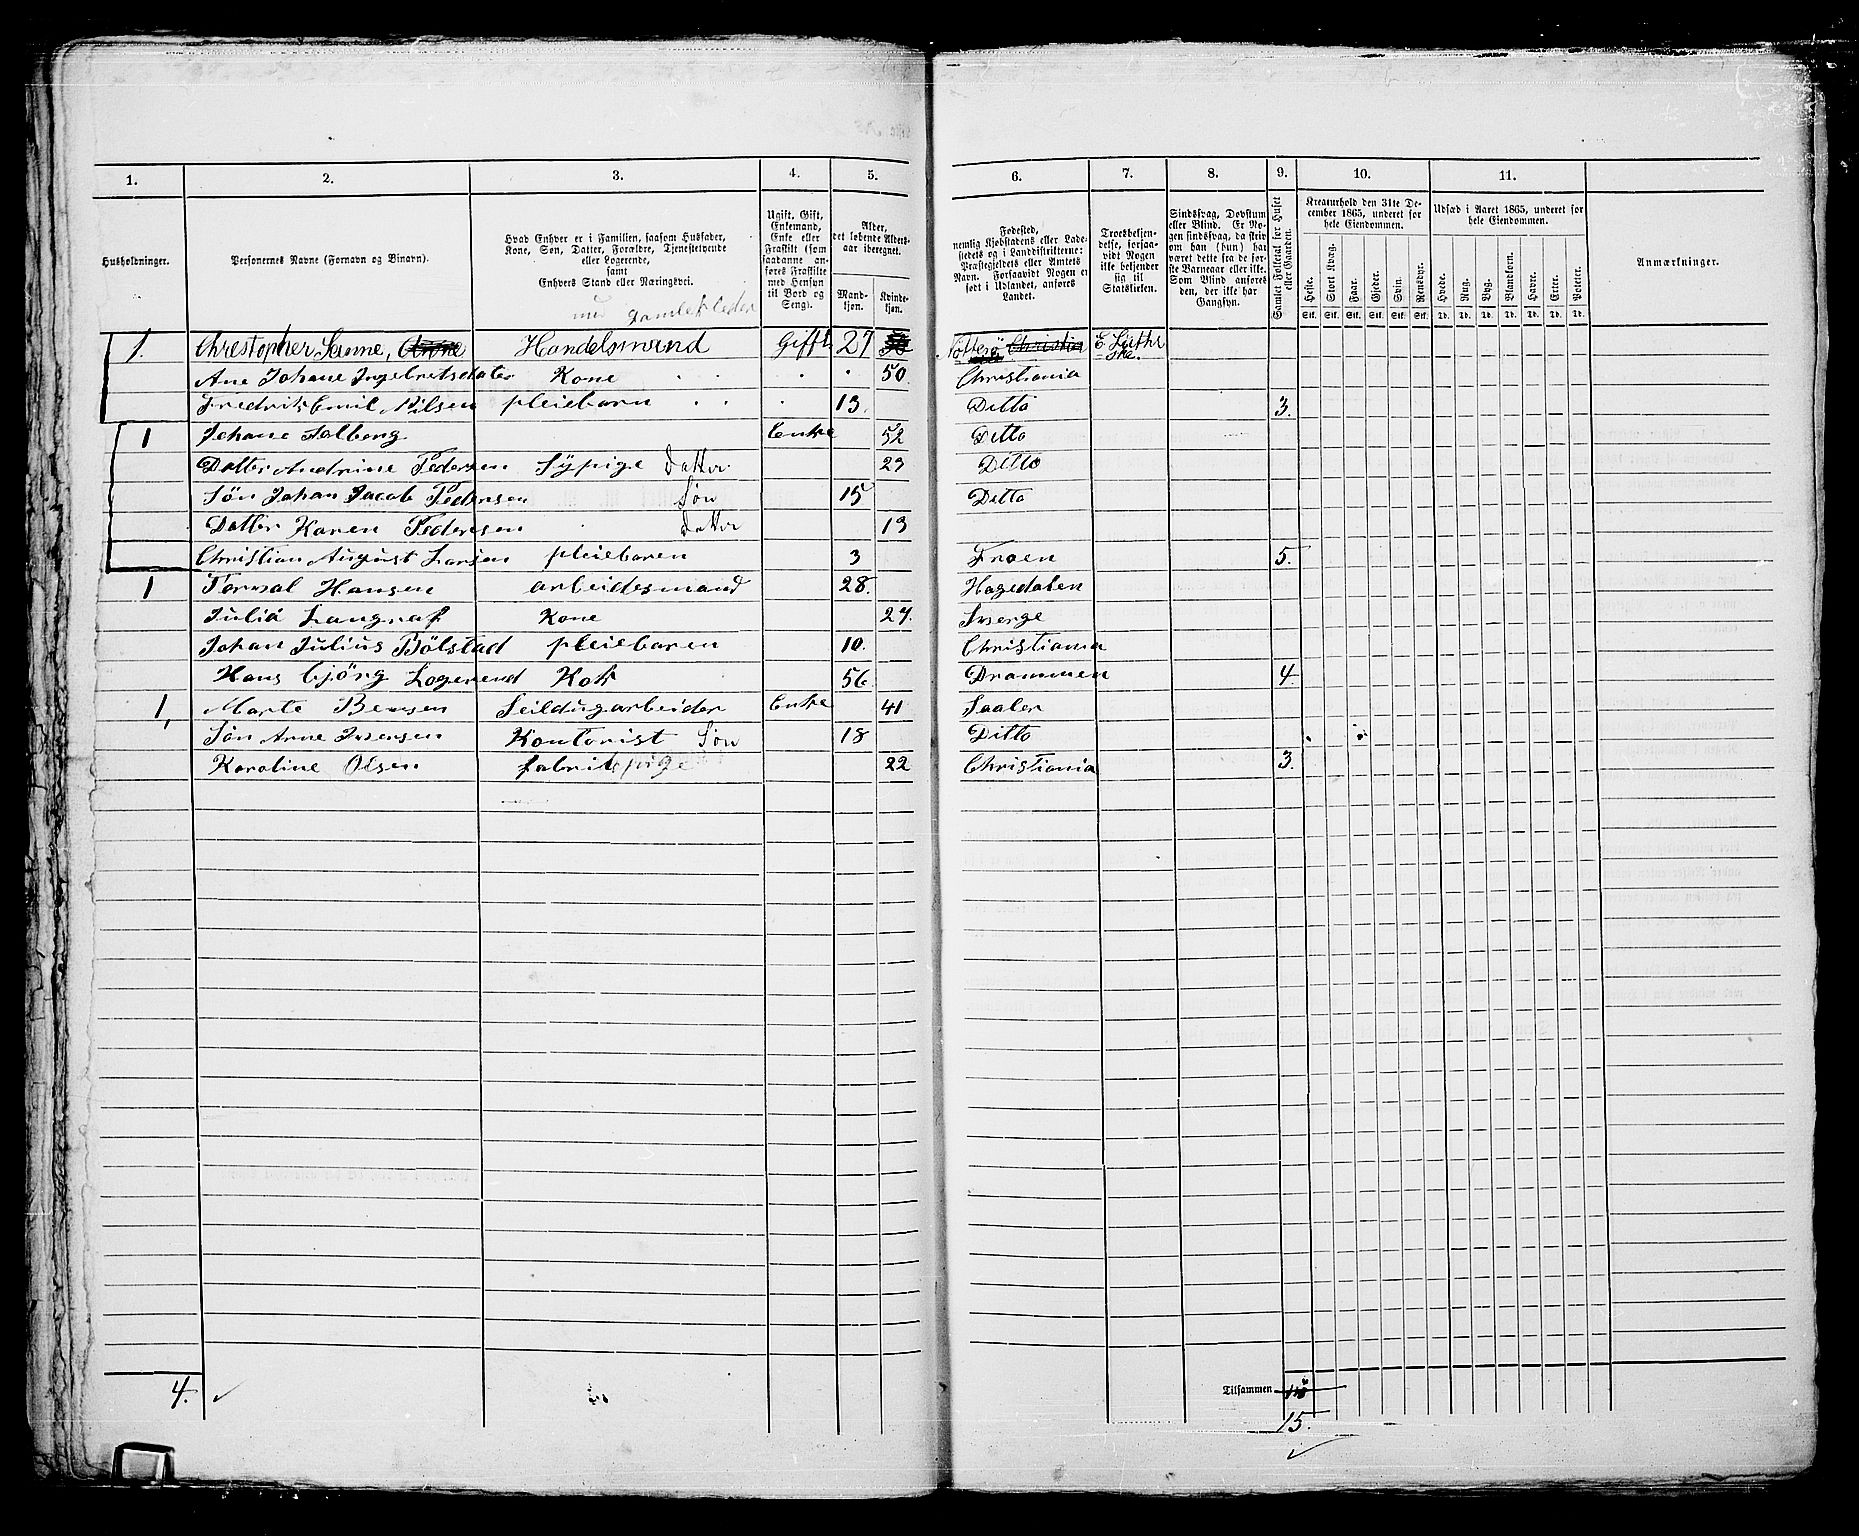 1. 2. 3. 4. 5. 6. 7. 8. 9. 10. 11.
Husholdninger.
Personernes Navne (Fornavn og Binavn).
Hvad Enhver er i Familien, saasom Husfader,
Kone, Søn, Datter, Forældre, Tjenestetyende
eller Logerende,
samt
Enhvers Stand eller Næringsvei.
Ugift, Gift,
Enkemand,
Enke eller
Fraskilt (som
saadanne an-
føres Fraskilte
med Hensyn
til Bord og
Seng).
Alder,
det løbende Alders-
aar iberegnet.
Mand-
kjøn.
Kvinde-
kjøn.
Fødested,
nemlig Kjøbstadens eller Lade-
stedets og i Landdistrikterne:
Præstegjeldets eller Amtets
Navn. Forsaavidt Nogen er
født i Udlandet, anføres
Landet.
Troesbekjen-
delse, forsaa-
vidt Nogen
ikke bekjender
sig til
Statskirken.
Sindssvag, Døvstum
eller Blind. Er No-
gen sindssvag, da skriv
om han (hun) har
været dette fra de før-
ste Barneaar eller ikke.
Som Blind anføres
den, der ikke har
Gangsyn.
Samlet Folketal for Huset
eller Gaarden.
Kreaturhold den 31te De-
cember 1865, underet for
hele Eiendommen.
Heste. Stort Kvæg. Faar. Gjeder. Svin. Rensdyr.
Stk. Stk. Stk. Stk. Stk. Stk.
Udsæd i Aaret 1865, underet for
hele Eiendommen.
Hvede. Rug. Byg. Blandkorn. Havre. Erter. Poteter.
Td. Td. Td. Td. Td. Td. Td.
Anmærkninger.
med gamle klæder
1. Chrestopher Sanne, Anne Handelsmand Gift 27 Christia E. Luthr
ske.
Ane Johane Ingebretsdater Kone 50 Christiania
Fredrik Emil Nilsen pleiebarn 13. Ditto 3.
1 Johane Solberg Enke 52 Ditto
Datter Andrine Pedersen Sypige Datter 23 Ditto
Søn Johan Jacob Pedersen Søn 15 Ditto
Datter Karen Pedersen Datter 13
Christian August Larsen pleiebaren 3 Froen 5.
1 Hansen arbeidesmand 28. Hagedalen
Julia Kone 27. Sverge
Johan Julius Bölstad pleiebaren 10. Christiania
Hans Logerend Kok 56. Drammen 4
1, Marte Seildugarbeider Enke 41 Saaler
Søn Arne Kontorist Søn 18 Ditto
Karoline Olsen fabrikspige 22 Christiania 3.
4.
Tilsammen
15.